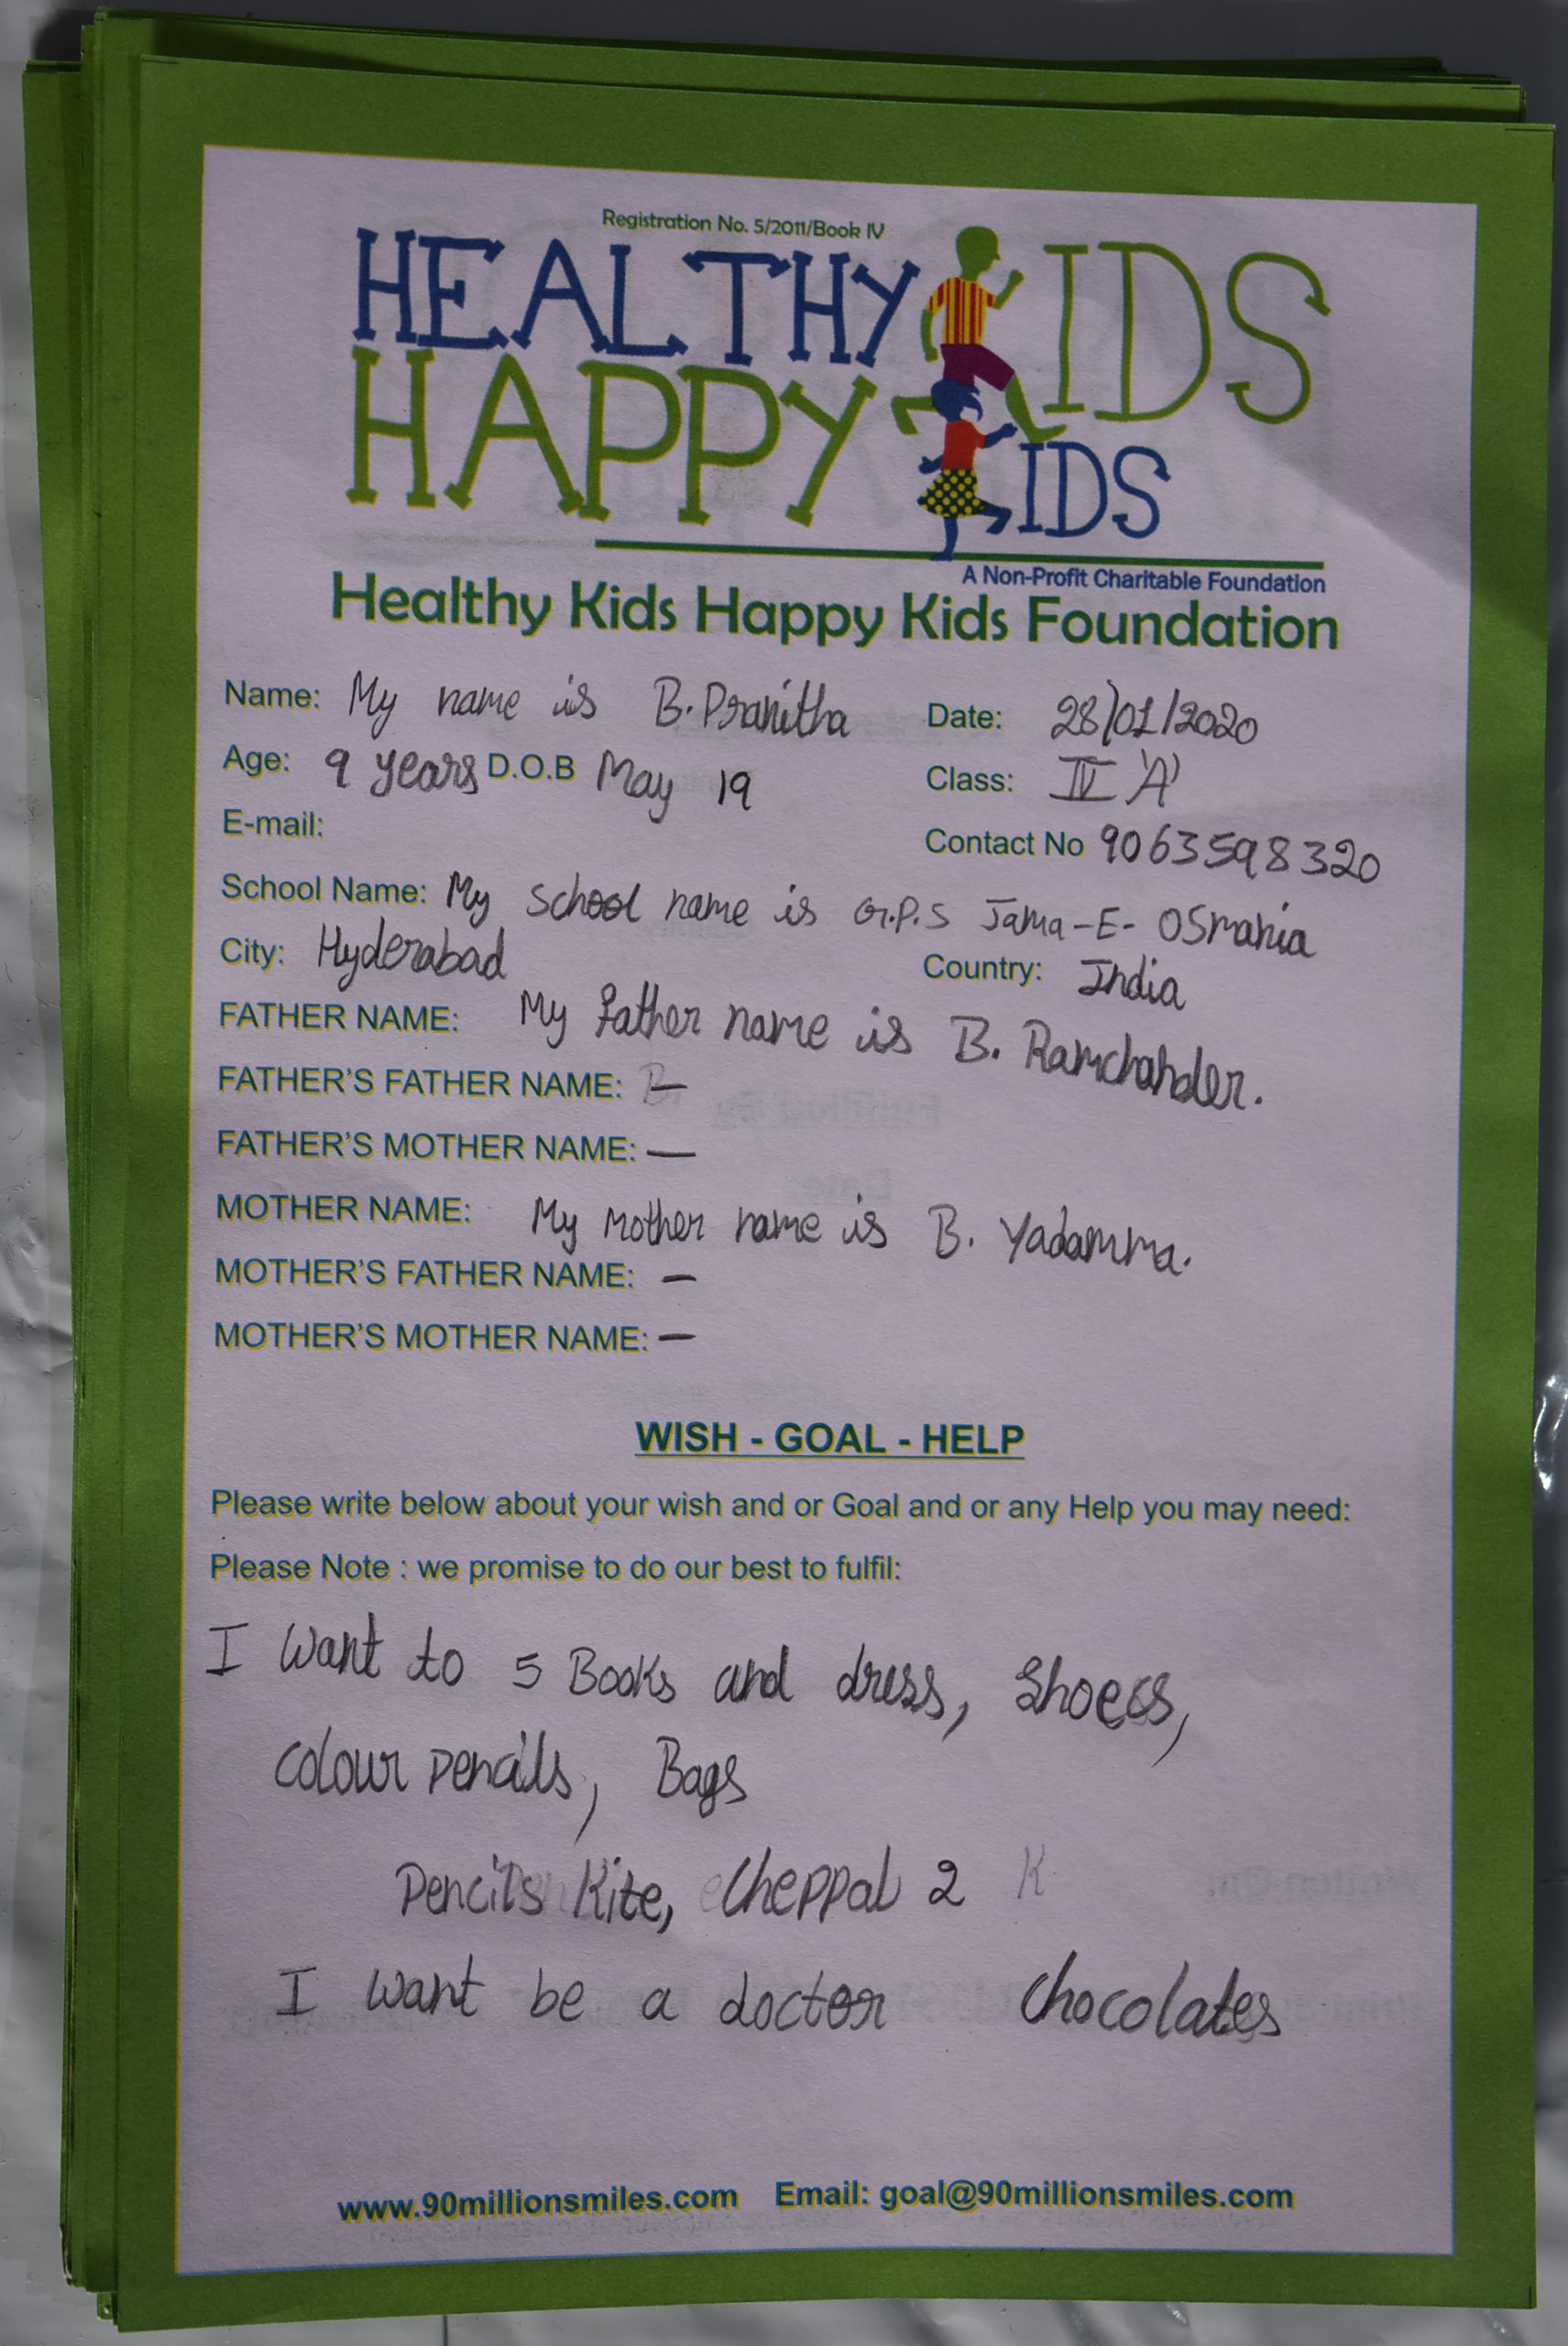 Registration No. 5/2011/Book IV
HEALTHY KIDS
HAPPY KIDS
A Non-Profit Charitable Foundation
Healthy Kids Happy Kids Foundation
Name: My name is B. Pranitha Date: 28/01/2020
Age: 9 years D.O.B May 19 Class: IV 'A'
E-mail: Contact No 9063598320
School Name: My school name is G.P.S Jama-E- OSmania
City: Hyderabad Country: India
FATHER NAME: My Father name is B. Ramchander.
FATHER'S FATHER NAME: —
FATHER'S MOTHER NAME: —
MOTHER NAME: My Mother name is B. Yadamma.
MOTHER'S FATHER NAME: —
MOTHER'S MOTHER NAME: —
WISH - GOAL - HELP
Please write below about your wish and or Goal and or any Help you may need:
Please Note : we promise to do our best to fulfil:
I want to 5 Books and dress, Shoees,
colour pencils, Bags
Pencils Kite, Cheppal 2 K
I want be a doctor chocolates
www.90millionsmiles.com Email: goal@90millionsmiles.com